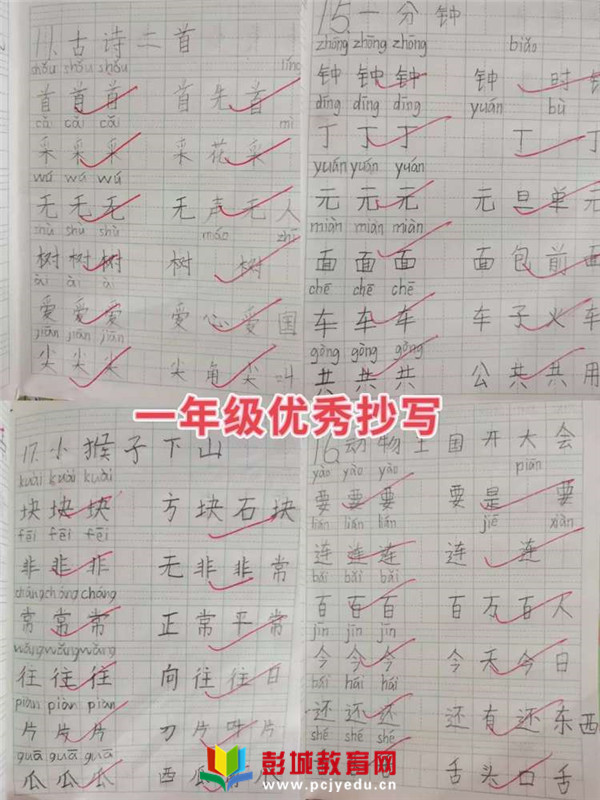 11.古诗二首
shǒu shǒu shǒu
首首首 首先首
cǎi cǎi cǎi
采采采 采花采
wú wú wú
无无无 无声无人
shù shù shù
树树树 树 树
ài ài ài
爱爱爱 爱心爱国
jiān jiān jiān
尖尖尖 尖角尖
15.一分钟
zhōng zhōng zhōng biǎo
钟钟钟 钟 时钟
dīng dīng dīng yuán bù
丁丁丁 丁 丁
yuán yuán yuán
元元元 元旦单元
miàn miàn miàn
面面面 面包前面
chē chē chē
车车车 车子火车
gòng gòng gòng
共共共 公共共用
一年级优秀抄写
17.小猴子下山
kuài kuài kuài
块块块 方块石块
fēi fēi fēi
非非非 无非非常
cháng cháng cháng
常常常 正常平常
wǎng wǎng wǎng
往往往 向往往日
piàn piàn piàn
片片片 刀片 片
guā guā guā
瓜瓜瓜 西瓜
16.动物王国开大会
yào yào yào piān
要要要 要是 要
lián lián lián jiē xiàn
连连连 连 连
bǎi bǎi bǎi
百百百 百万百人
jīn jīn jīn
今今今 今天今日
hái hái hái
还还还 还有还东西
shé shé shé
舌头口舌
彭城教育网
www.pcjyedu.cn